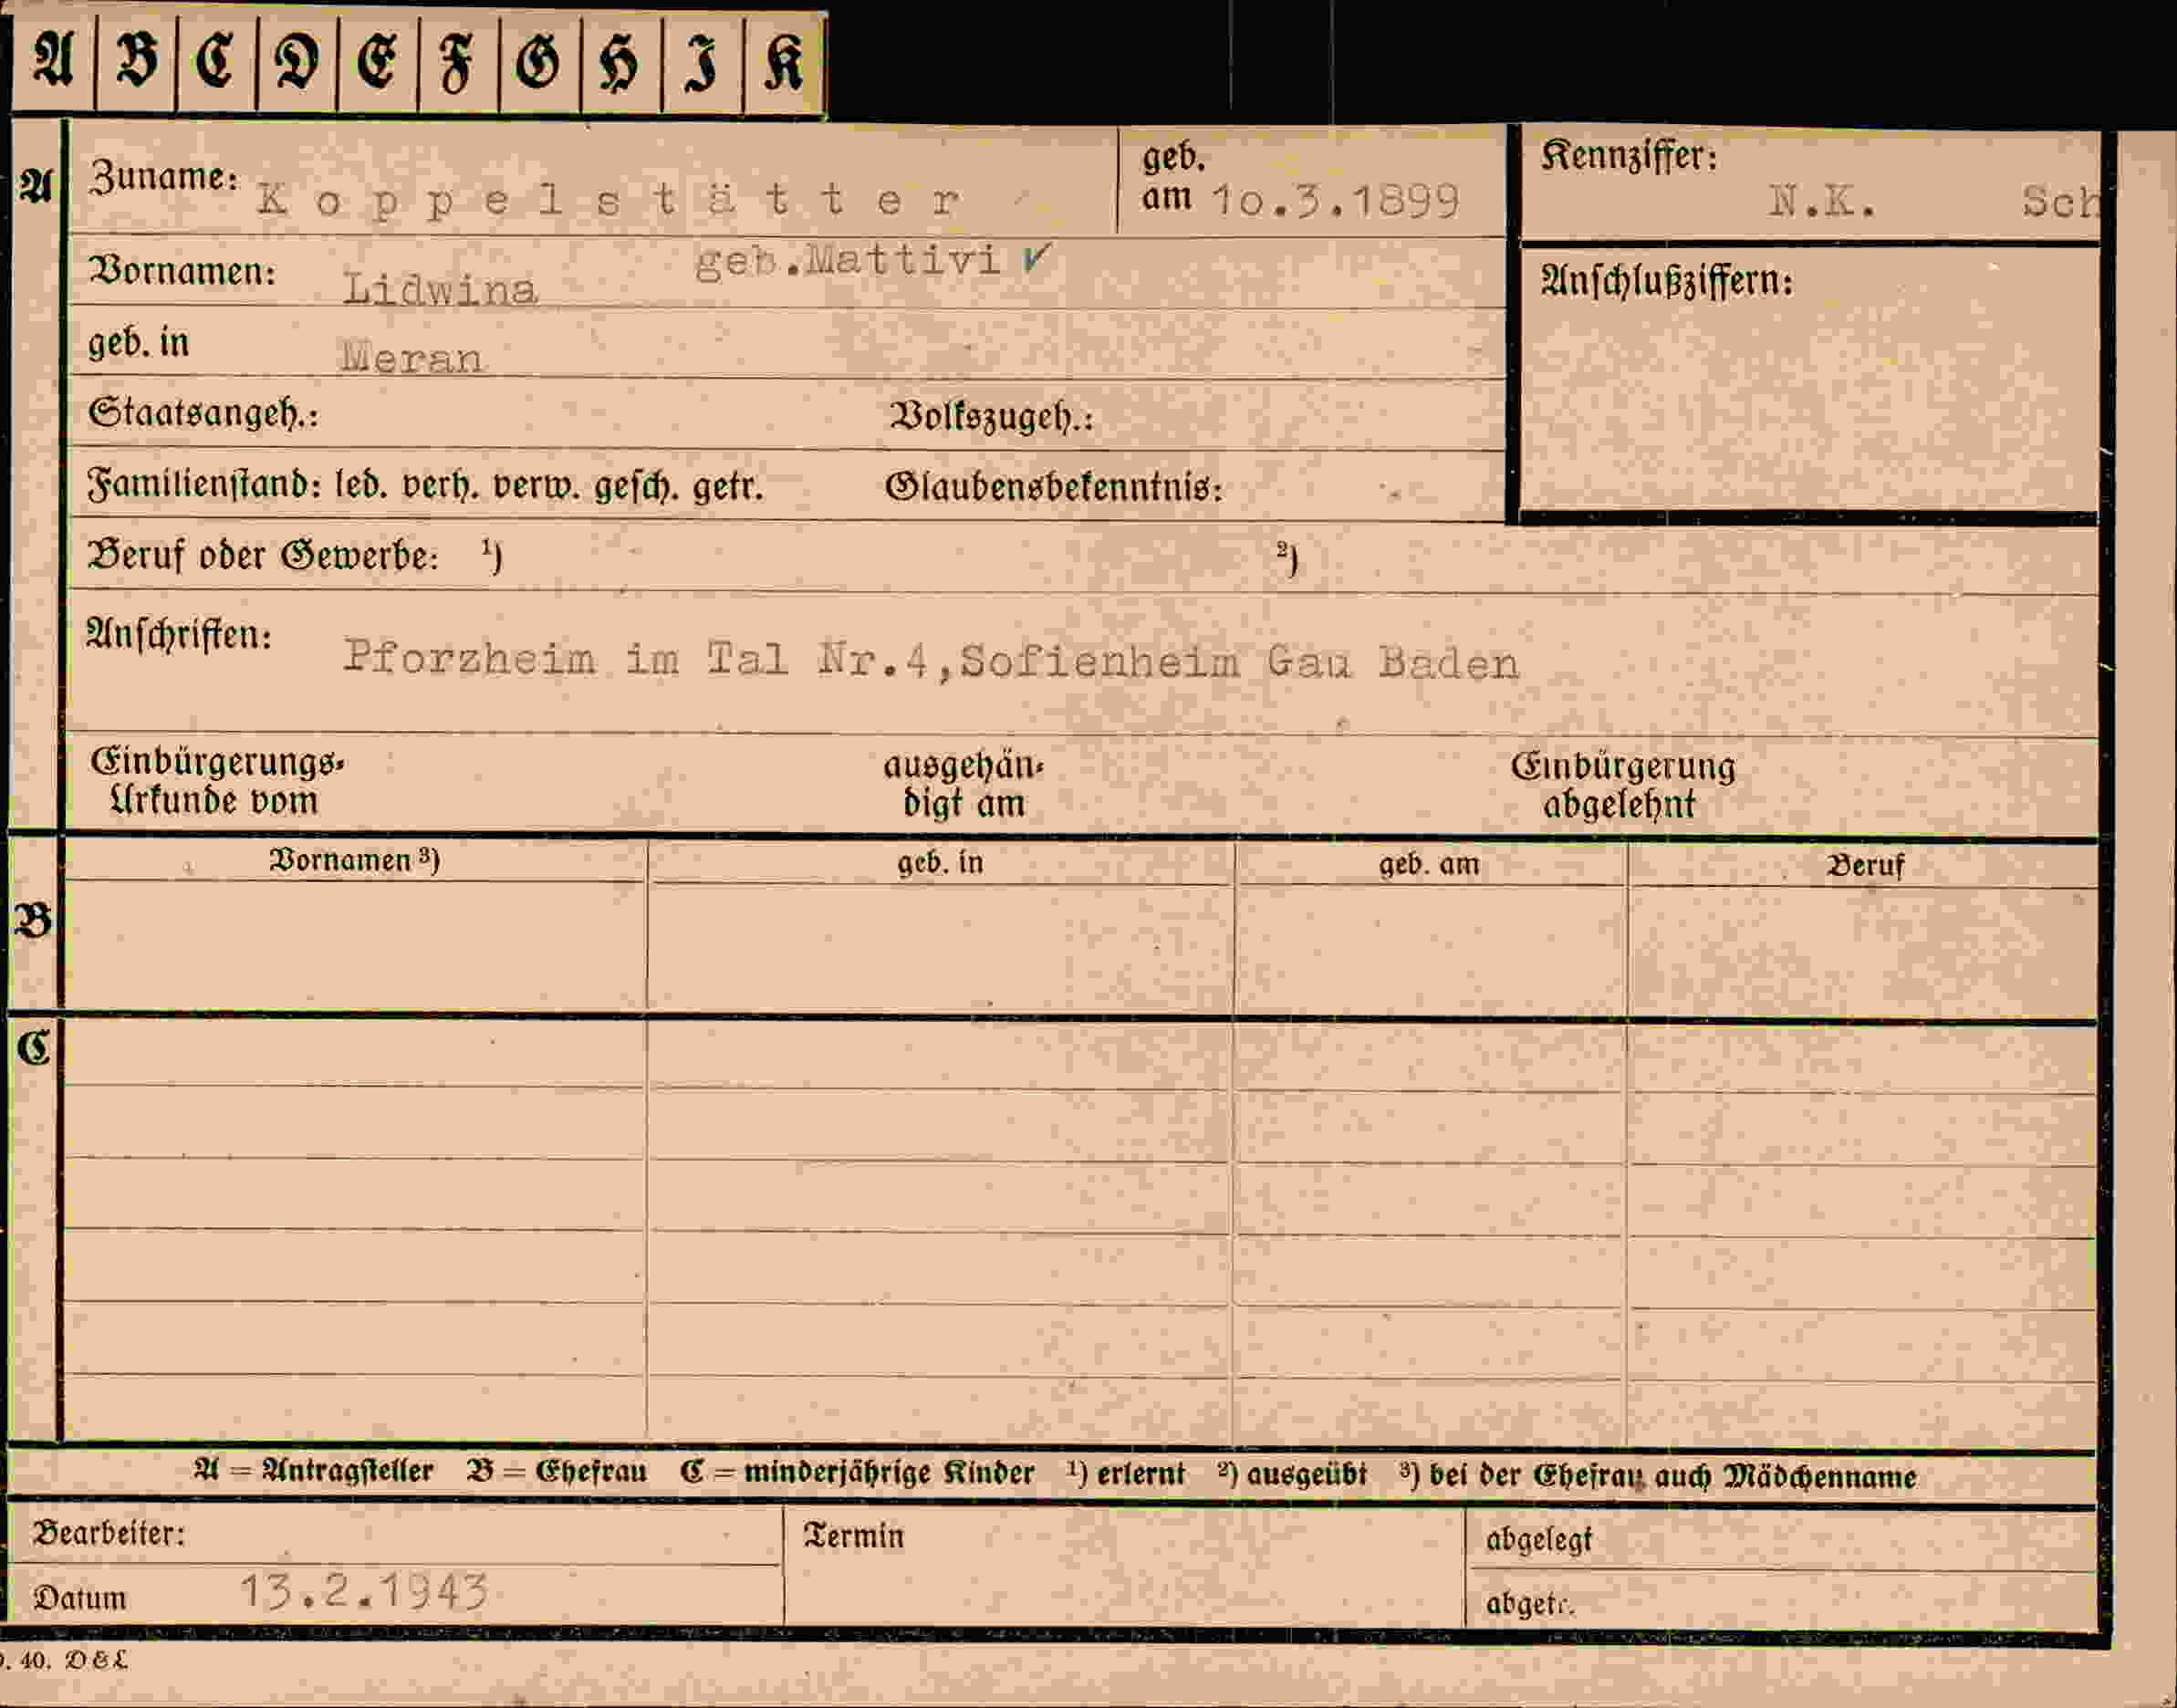 A B C D E F G H I K
A
Zuname: Koppelstätter
geb. am 1o.3.1899
Kennziffer:
N.K. Sch
Vornamen: Lidwina geb.Mattivi ✓
Anschlußziffern:
geb. in Meran
Staatsangeh.: Volkszugeh.:
Familienstand: led. verh. verw. gesch. getr. Glaubensbekenntnis:
Beruf oder Gewerbe: ¹) ²)
Anschriften: Pforzheim im Tal Nr.4,Sofienheim Gau Baden
Einbürgerungs-
Urkunde vom
ausgehän-
digt am
Einbürgerung
abgelehnt
Vornamen ³) geb. in geb. am Beruf
B
C
A = Antragsteller B = Ehefrau C = minderjährige Kinder ¹) erlernt ²) ausgeübt ³) bei der Ehefrau auch Mädchenname
Bearbeiter: Termin abgelegt
Datum 13.2.1943 abgetr.
. 40. D&L